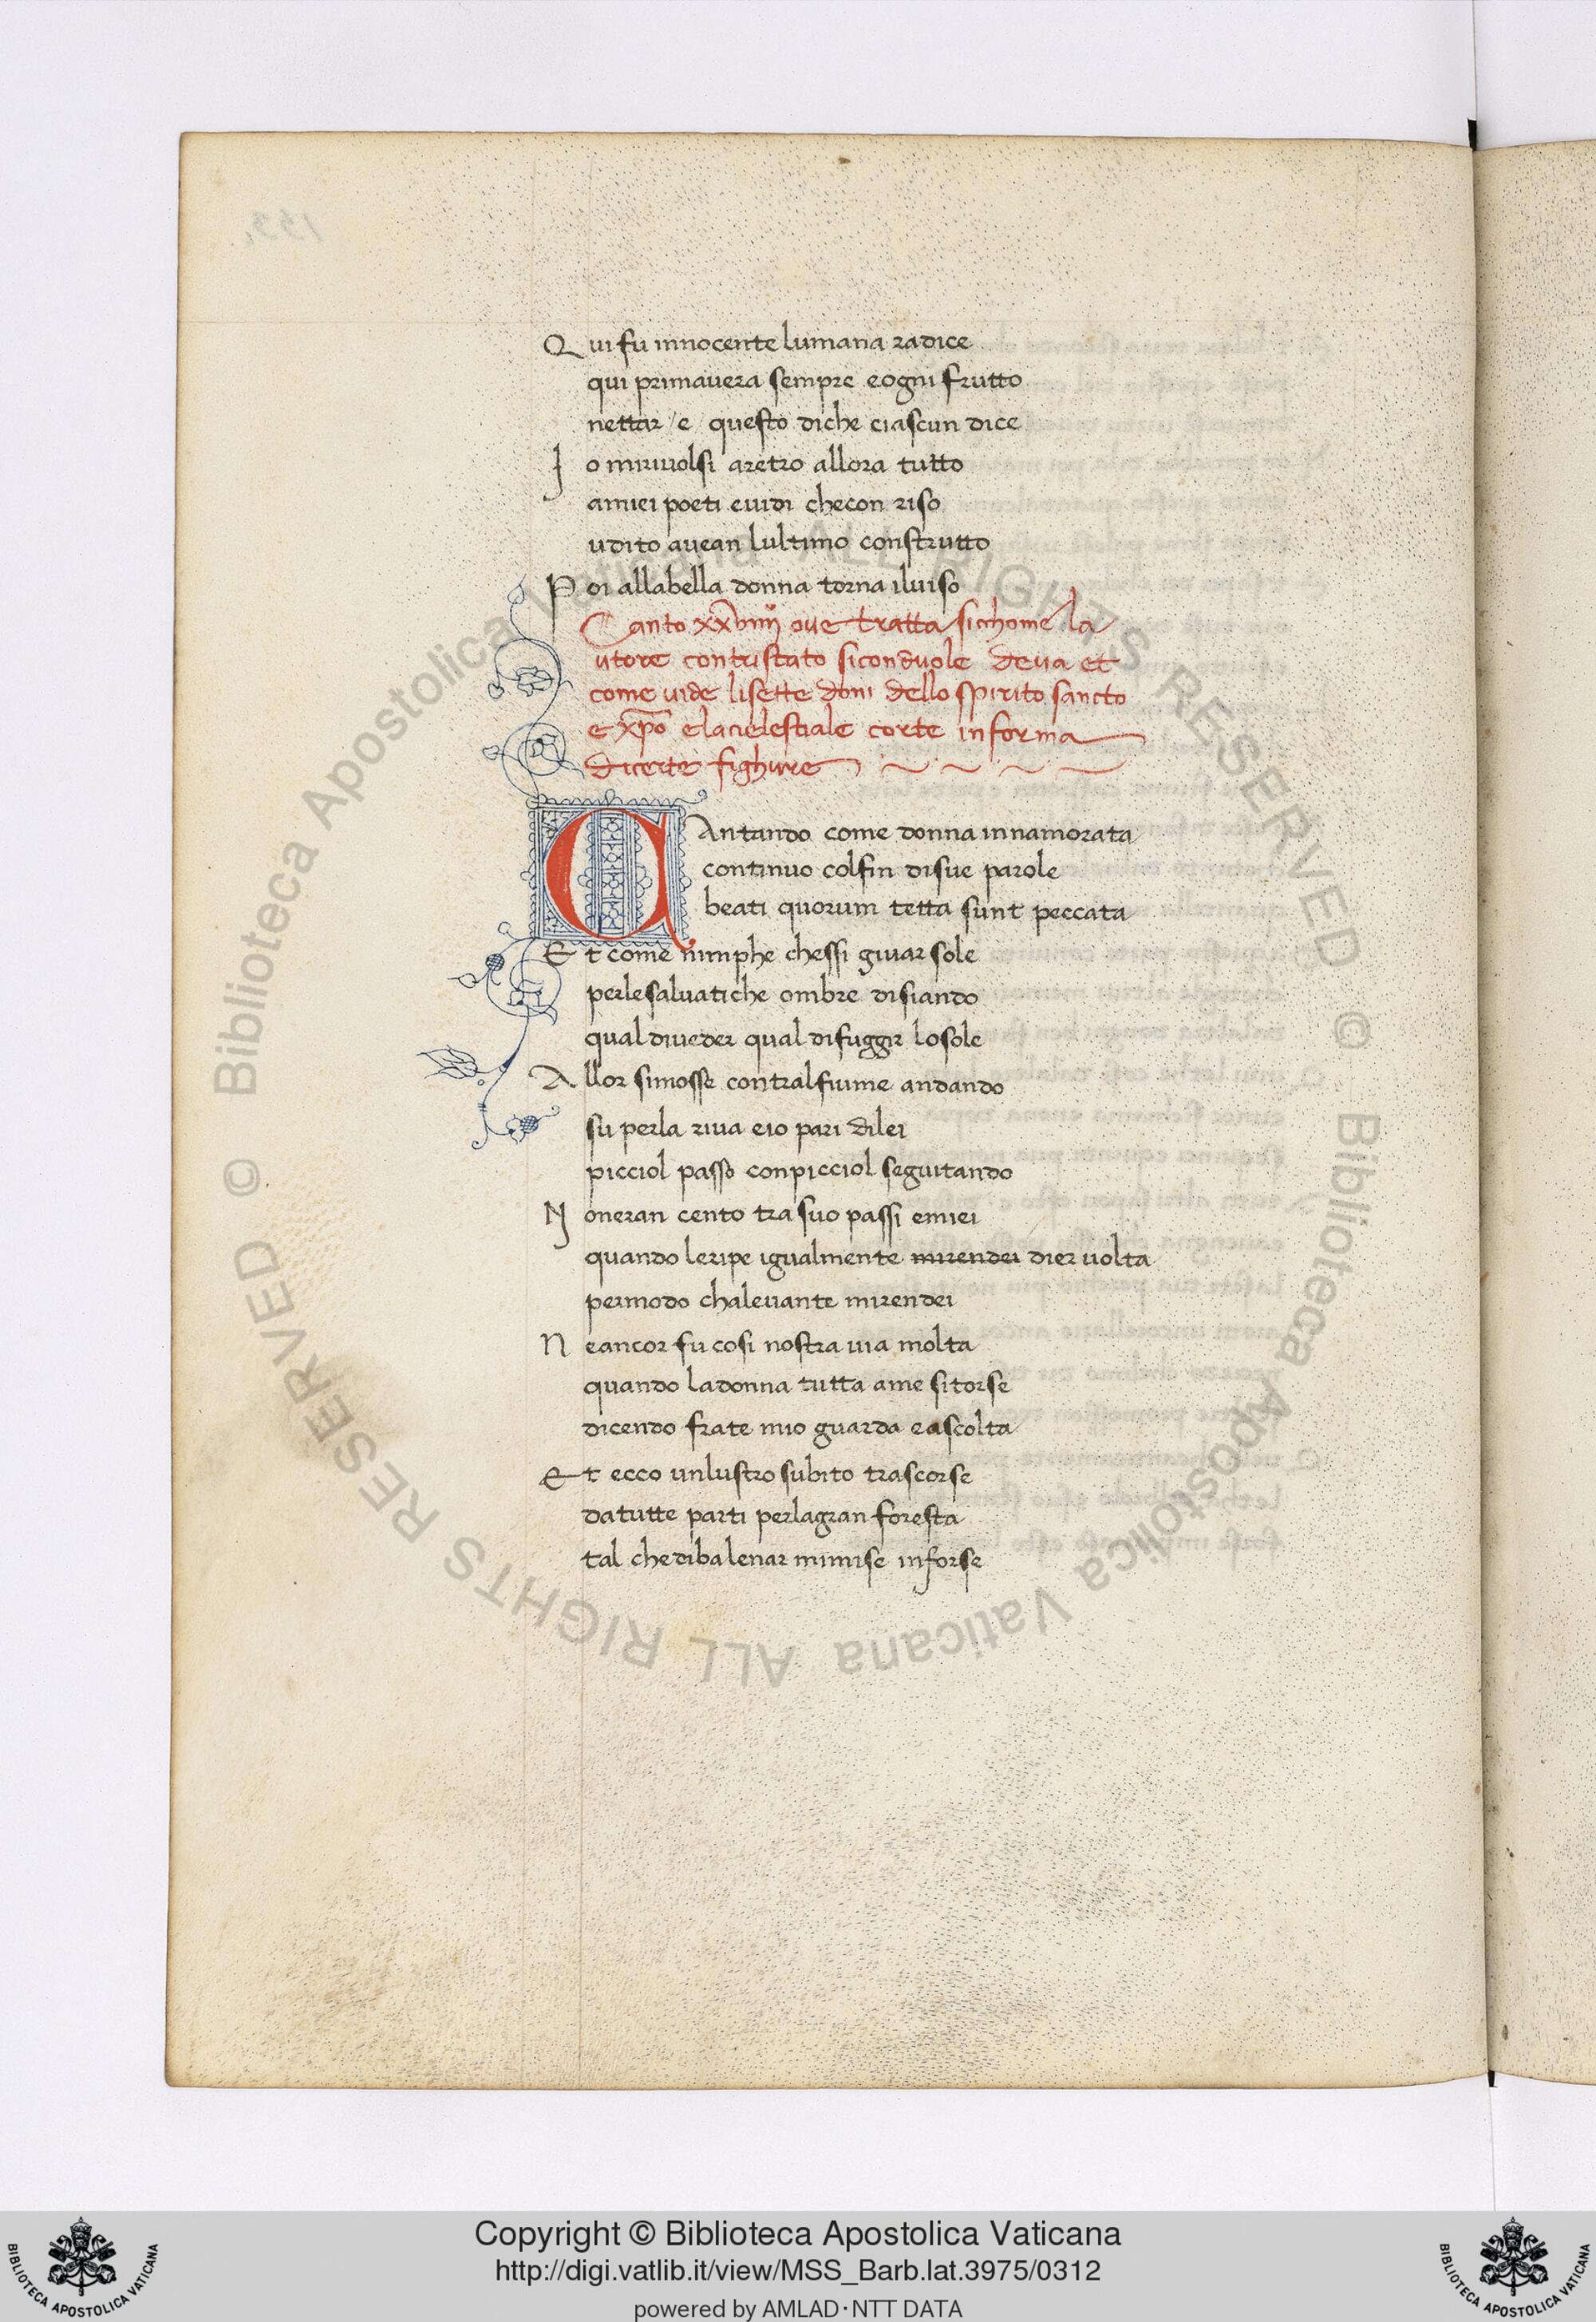 Qui fu innocente lumana radice
qui primauera sempre eogni frutto
nettar / e / questo diche ciascun dice
Io miriuolsi aretro allora tutto
amiei poeti euidi checon riso
udito auean lultimo construtto
Poi allabella donna torna iluiso
Canto xxviiij oue tratta sicchome la
utore contristato sicondvole deva et
come uide lisette doni dello spirito sancto
e xpo elacielestiale corte in forma
dicerte fighure
CAntando come donna innamorata
continuo colfin disue parole
beati quorum tetta sunt peccata
Et come nimphe chessi giuar sole
perlesaluatiche ombre disiando
qual diueder qual difuggir losole
Allor simosse contralfiume andando
su perla riua eio pari dilei
picciol passo conpicciol seguitando
Noneran cento tra suo passi emiei
quando leripe igualmente mirendei dier uolta
permodo chaleuante mirendei
Neancor fu cosi nostra uia molta
quando ladonna tutta ame sitorse
dicendo frate mio guarda eascolta
Et ecco unlustro subito trascorse
datutte parti perlagran foresta
tal chedibalenar mimise inforse
Copyright © Biblioteca Apostolica Vaticana
http://digi.vatlib.it/view/MSS_Barb.lat.3975/0312
powered by AMLAD·NTT DATA
BIBLIOTECA APOSTOLICA VATICANA
BIBLIOTECA APOSTOLICA VATICANA
© Biblioteca Apostolica Vaticana ALL RIGHTS RESERVED
© Biblioteca Apostolica Vaticana ALL RIGHTS RESERVED